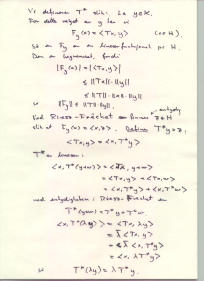 Vi definerer T* slik: La y∈H.
For dette valget av y lar vi
F_y(x) = <Tx, y> (x∈H).
Så er F_y en lineærfunksjonal på H.
Den er begrenset, fordi
|F_y(x)| = |<Tx, y>|
≤ ||Tx|| · ||y||
≤ ||T|| · ||x|| · ||y||
så ||F_y|| ≤ ||T|| · ||y||.
Ved Riesz-Fréchet finnes entydig z∈H
slik at F_y(x) = <x, z>. Definer T*y = z,
<Tx, y> = <x, T*y>
T* er lineær:
<x, T*(y+w)> = <Tx, y+w>
= <Tx, y> + <Tx, w>
= <x, T*y> + <x, T*w>
ved entydigheten i Riesz-Fréchet er
T*(y+w) = T*y + T*w
<x, T*(λy)> = <Tx, λy>
= λ̄ <Tx, y>
= λ̄ <x, T*y>
= <x, λT*y>
så T*(λy) = λT*y.